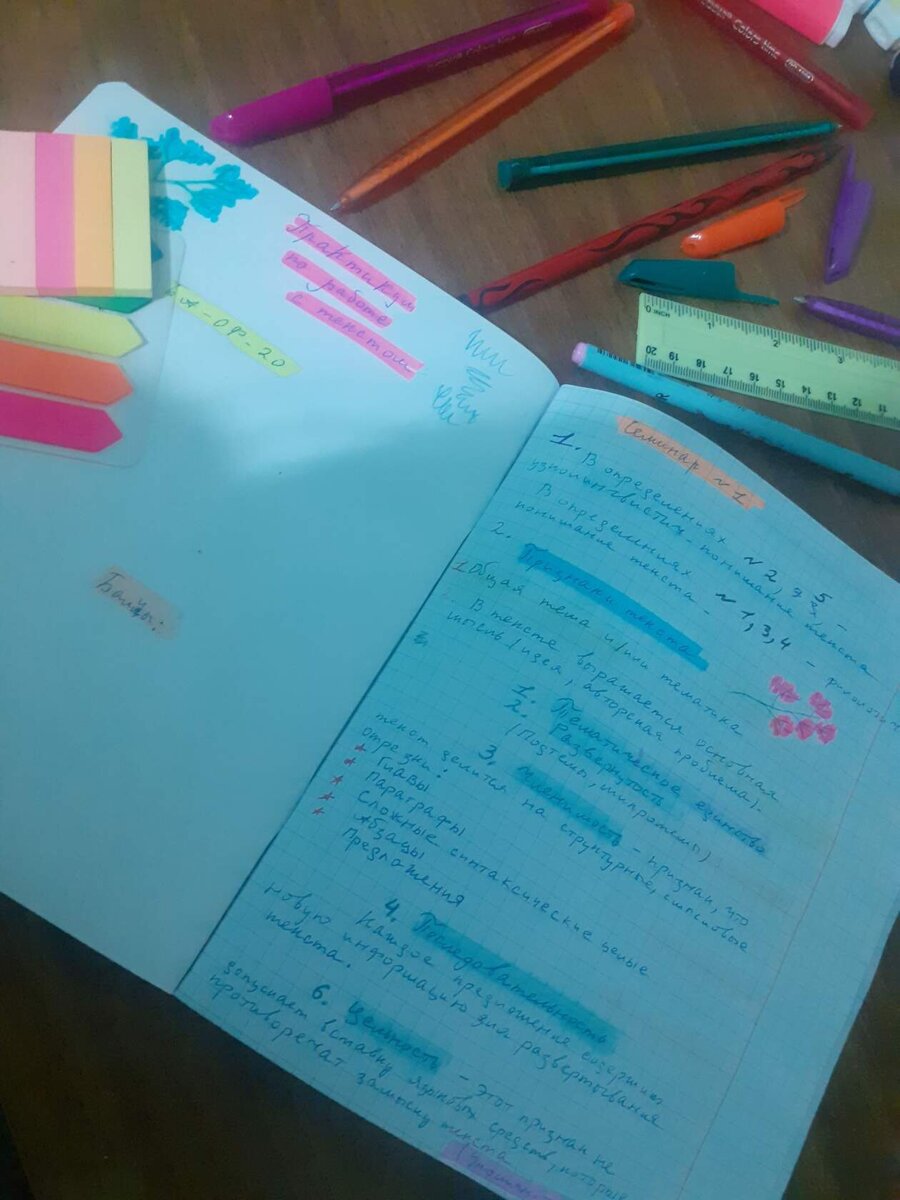 Практикум
по работе
с текстом
А-ОФ-20
Баллы:
Семинар №1
1. В определениях №2, 5 –
лингвистич. понимание текста
В определениях № 1, 3, 4 –
понимание текста –
2. Признаки текста
1. Общая тема и/или тематика
В тексте выражается основная
мысль (идея, авторская проблема).
1. Тематическое единство
2. Развернутость
(Подтемы, микротемы)
3. Членимость – признак, что
текст делится на структурные, смысловые
отрезки:
* Главы
* Параграфы
* Сложные синтаксические целые
* Абзацы
Предложения
4. Последовательность
Каждое предложение содержит
новую информацию для развертывания
текста.
6. Цельность – Этот признак не
допускает вставку языковых средств, которые
противоречат замыслу текста
Colors time
INCH
1
2
3
20 19 18 17 16 15 14 13 12 11